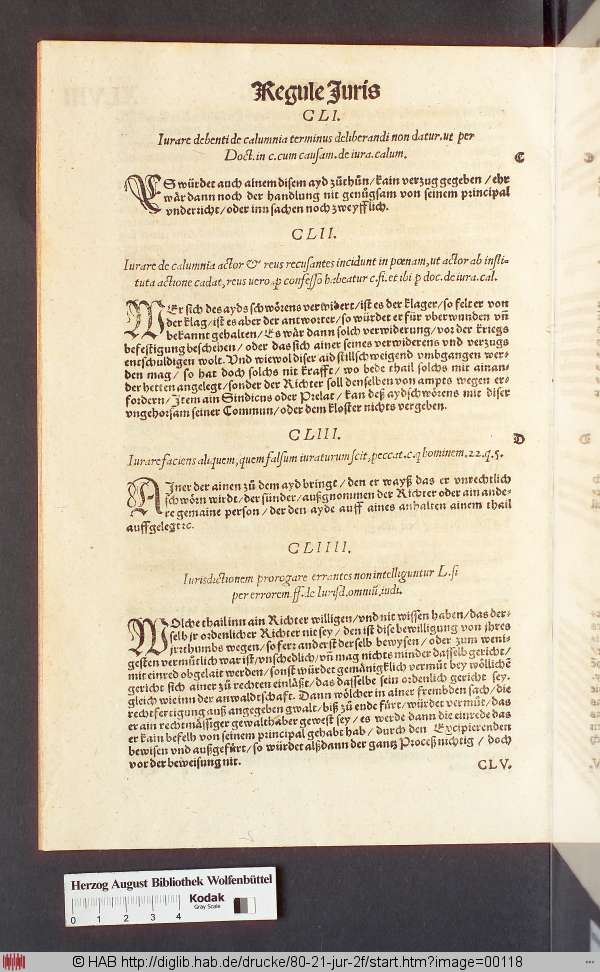 Regule Juris
CLI.
Iurare debenti de calumnia terminus deliberandi non datur. ut per
Doct. in c. cum causam. de iura. calum.
C
ES würdet auch ainem disem ayd zůthůn / kain verzug gegeben / ehr
wär dann noch der handlung nit genůgsam von seinem principal
vnderricht / oder inn sachen noch zweyfflich.
CLII.
Iurare de calumnia actor & reus recusantes incidunt in pœnam, ut actor ab insti-
tuta actione cadat, reus uero, p confesso habeatur c. fi. et ibi p doc. de iura. cal.
WEr sich des ayds schwörens verwidert / ist es der klager / so felt er von
der klag / ist es aber der antworter / so würdet er für vberwunden vñ
bekannt gehalten / Es wär dann solch verwiderung / vor der kriegs
befestigung beschehen / oder das sich ainer seines verwiderens vnd verzugs
entschüldigen wolt. Vnd wiewol diser aid stillschweigend vmbgangen wer-
den mag / so hat doch solchs nit krafft / wo bede thail solchs mit ainan-
der hetten angelegt / sonder der Richter soll denselben von ampts wegen er-
fordern / Item ain Sindicus oder Prelat / kan deß aydschwörens mit diser
vngehorsam seiner Commun / oder dem kloster nichts vergeben.
CLIII.
D
Iurare faciens aliquem, quem falsum iuraturum scit, peccat. c. q hominem. 22. q. 5.
AIner der ainen zů dem ayd bringt / den er wayß das er vnrechtlich
schwörn wirdt / der sünder / außgnonmen der Richter oder ain ande-
re gemaine person / der den ayde auff aines anhalten ainem thail
auffgelegt ꝛc.
CLIIII.
Iurisdictionem prorogare errantes non intelliguntur L. si
per errorem. ff. de Iurisd. omniũ, iudi.
WOlche thail inn ain Richter willigen / vnd nit wissen haben / das der-
selb jr ordenlicher Richter nit sey / den ist dise bewilligung von jhres
jrrthumbs wegen / so fert anderst der selb bewysen / oder zum weni-
gesten vermůtlich war ist / vnschedlich / vñ mag nichts minder dasselb gericht /
mit einred obgelait werden / sonst würdet gemänigklich vermůt bey wöllichẽ
gericht sich ainer zů rechten einläßt / das dasselbe sein ordenlich gericht sey.
gleich wie inn der anwaldtschafft. Dann wölcher in ainer frembden sach / die
rechtfertigung auß angegeben gwalt / biß zů ende fürt / würdet vermůt / das
er ain rechtmässiger gewalthaber gewest sey / es werde dann die einrede das
er kain befelh von seinem principal gehabt hab / durch den Excipierenden
bewisen vnd außgefürt / so würdet alßdann der gantz Proceß nichtig / doch
vor der beweisung nit.
CLV.
Herzog August Bibliothek Wolfenbüttel
0 1 2 3 4
Kodak
Gray Scale
© HAB http://diglib.hab.de/drucke/80-21-jur-2f/start.htm?image=00118